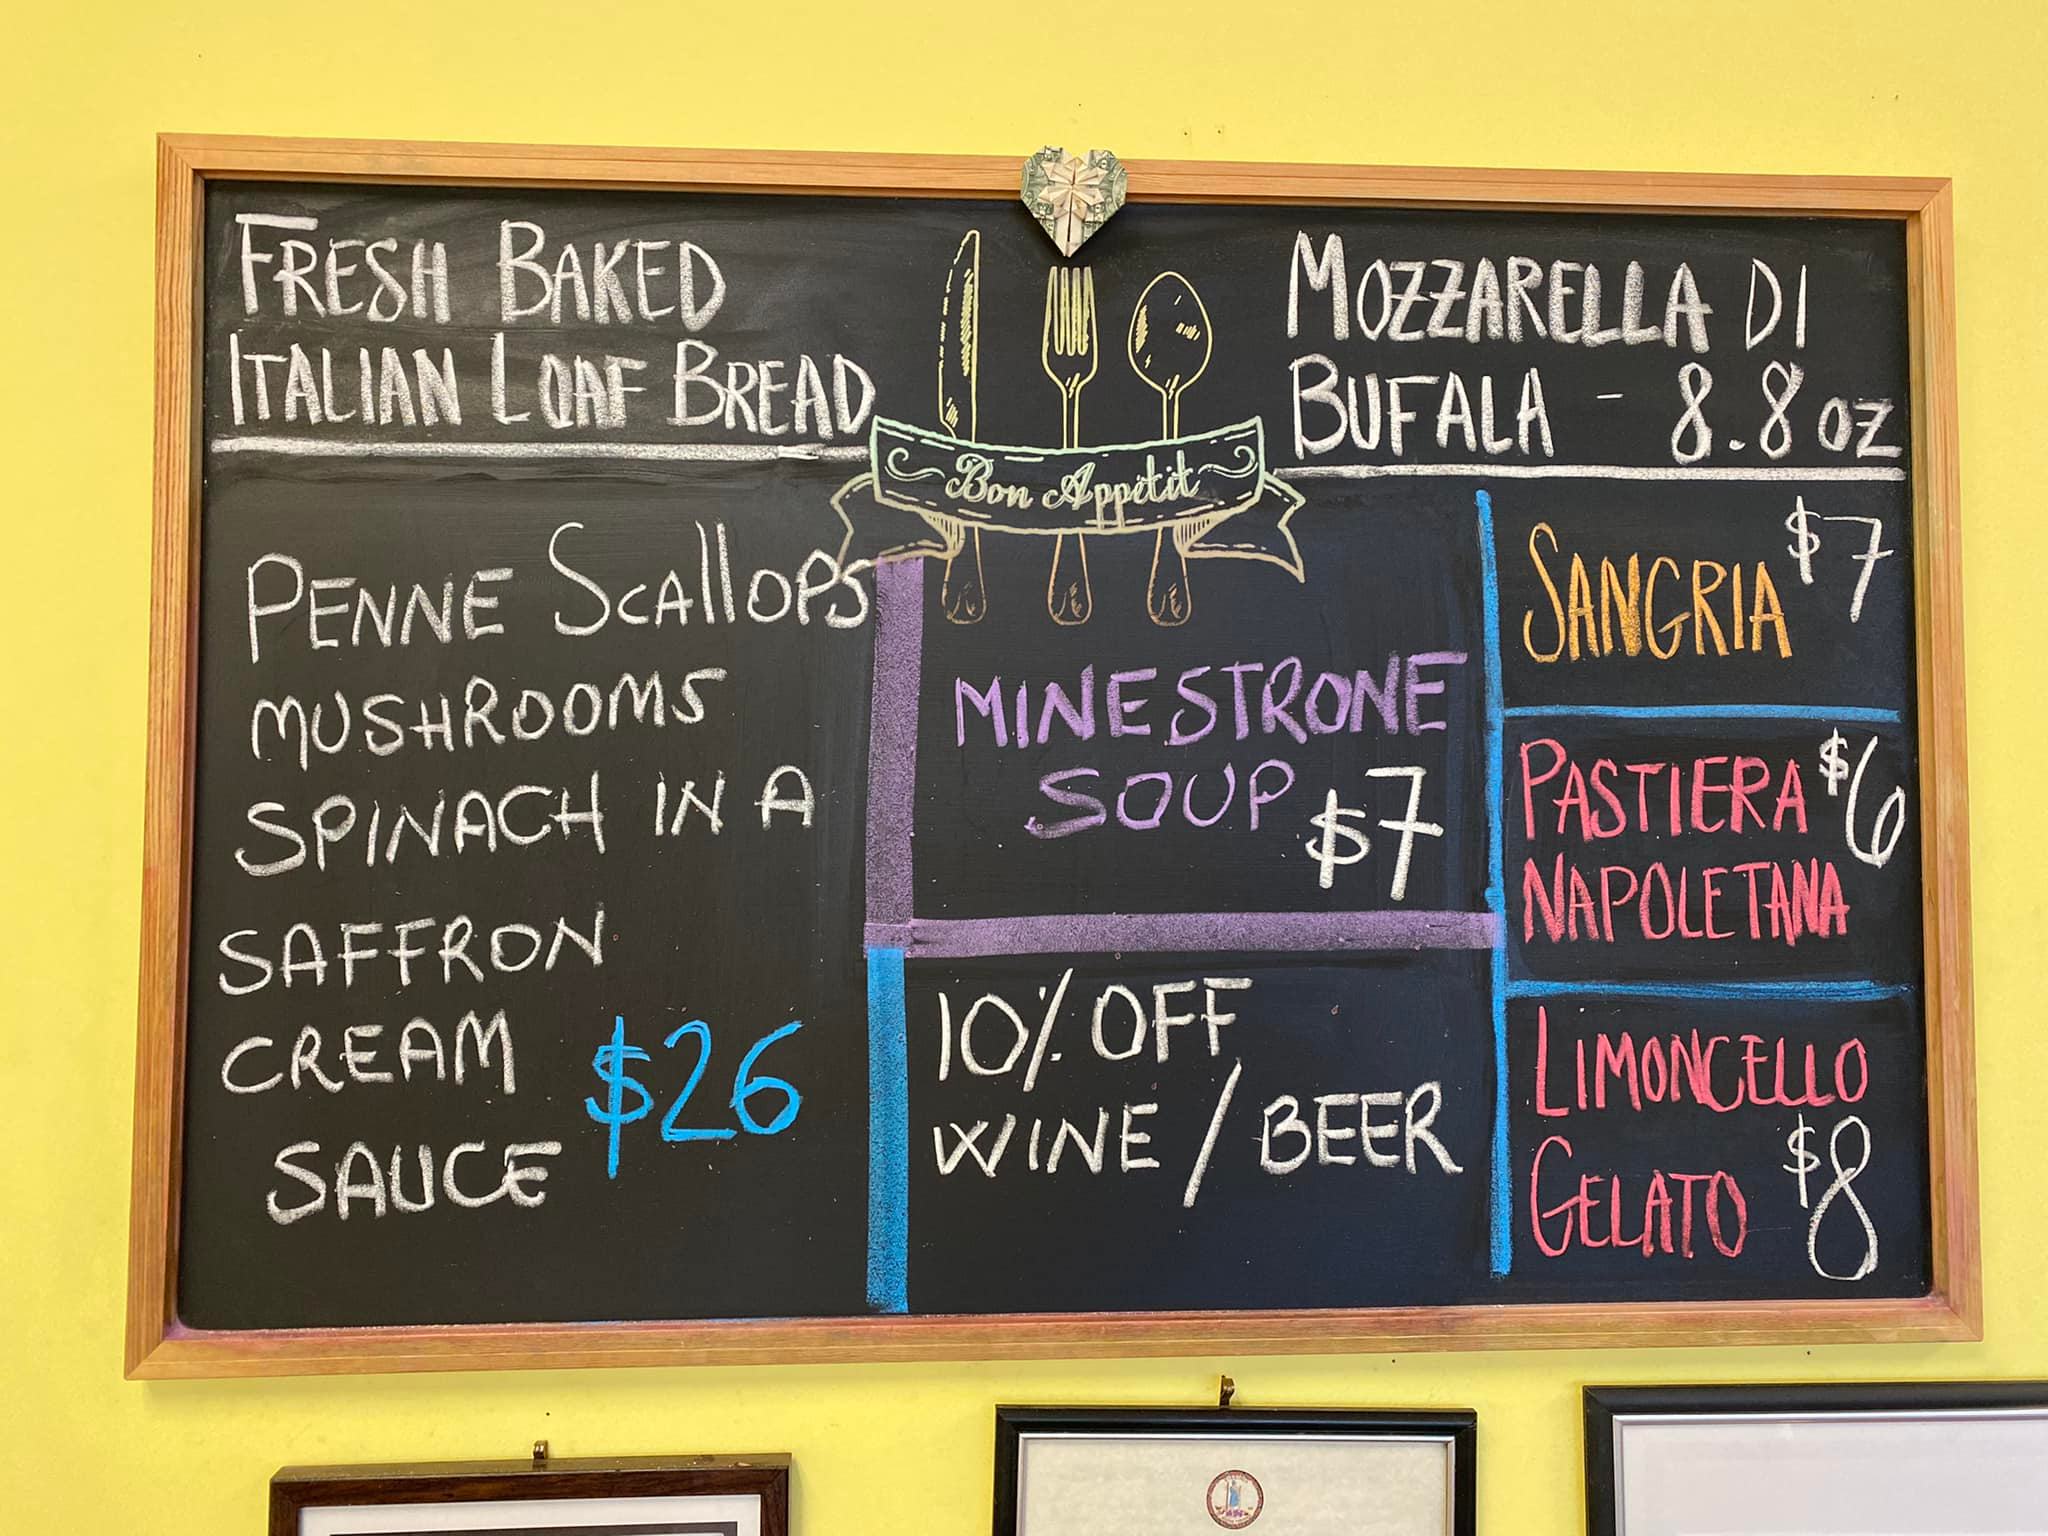 FRESH BAKED
ITALIAN LOAF BREAD
Bon Appetit
MOZZARELLA DI
BUFALA - 8.8 oz
PENNE SCAllOPS
MUSHROOMS
SPINACH IN A
SAFFRON
CREAM
SAUCE $26
MINESTRONE
SOUP $7
10% OFF
WINE / BEER
SANGRIA $7
PASTIERA $6
NAPOLETANA
LiMONCELLO
GELATO $8